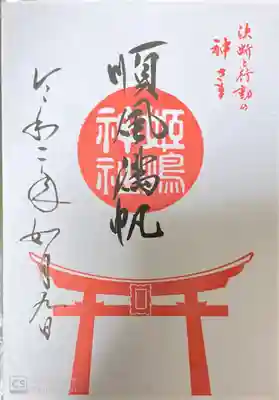 決断と行動の
神さま
順風満帆
姫嶋
神社
令和二年如月九日
CS